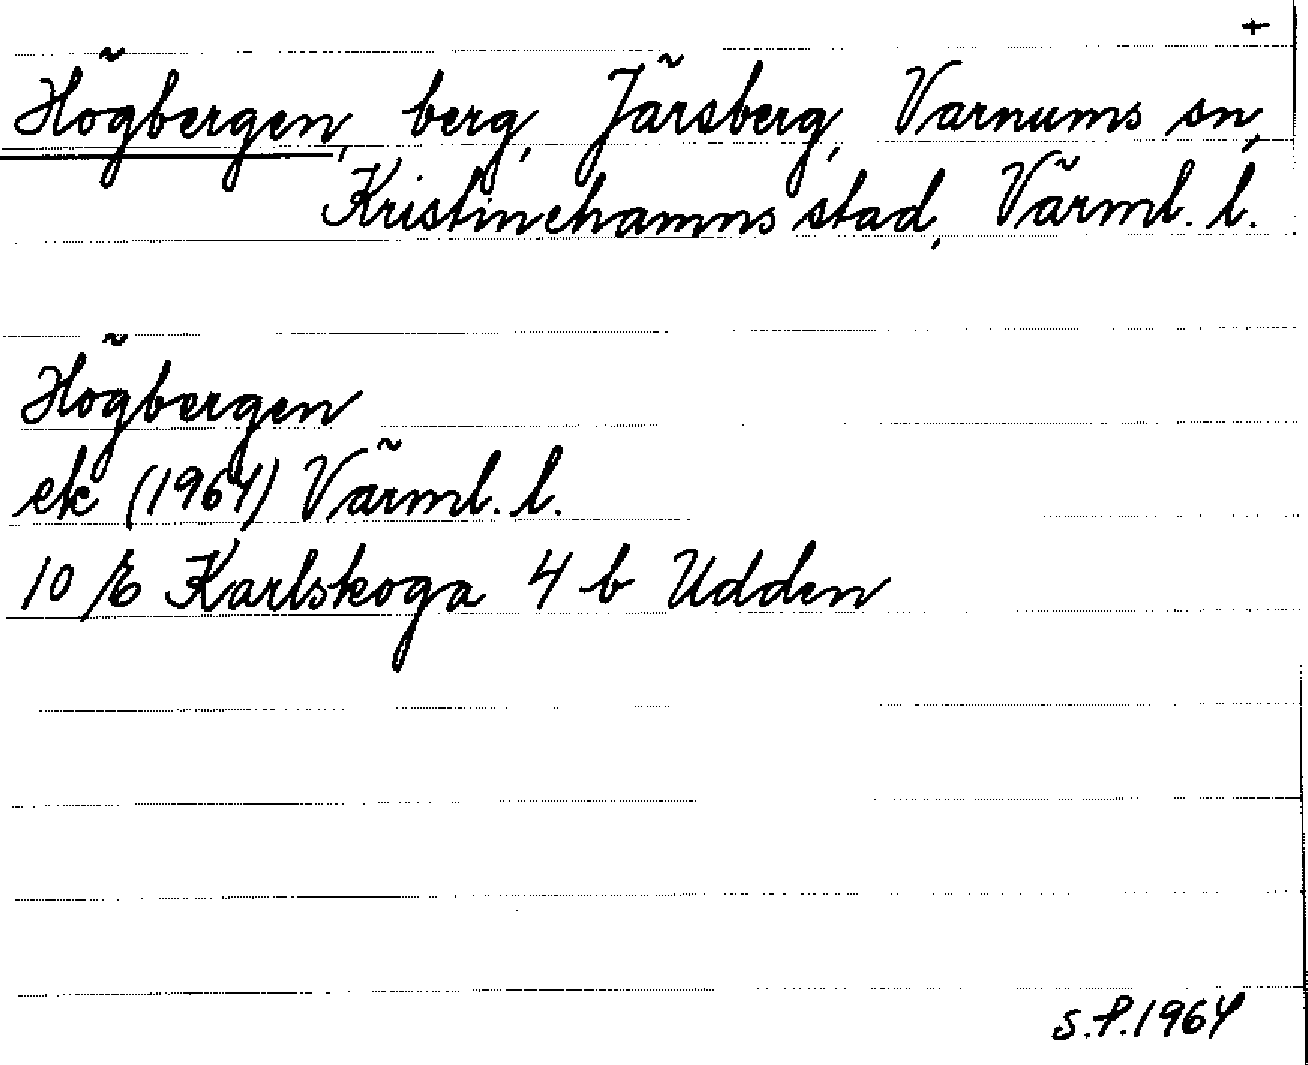 +
Högbergen, berg, Järsberg, Varnums sn,
Kristinehamns stad, Värml. l.
Högbergen
ek (1964) Värml. l.
10 E Karlskoga 4 b Udden
S.P. 1964